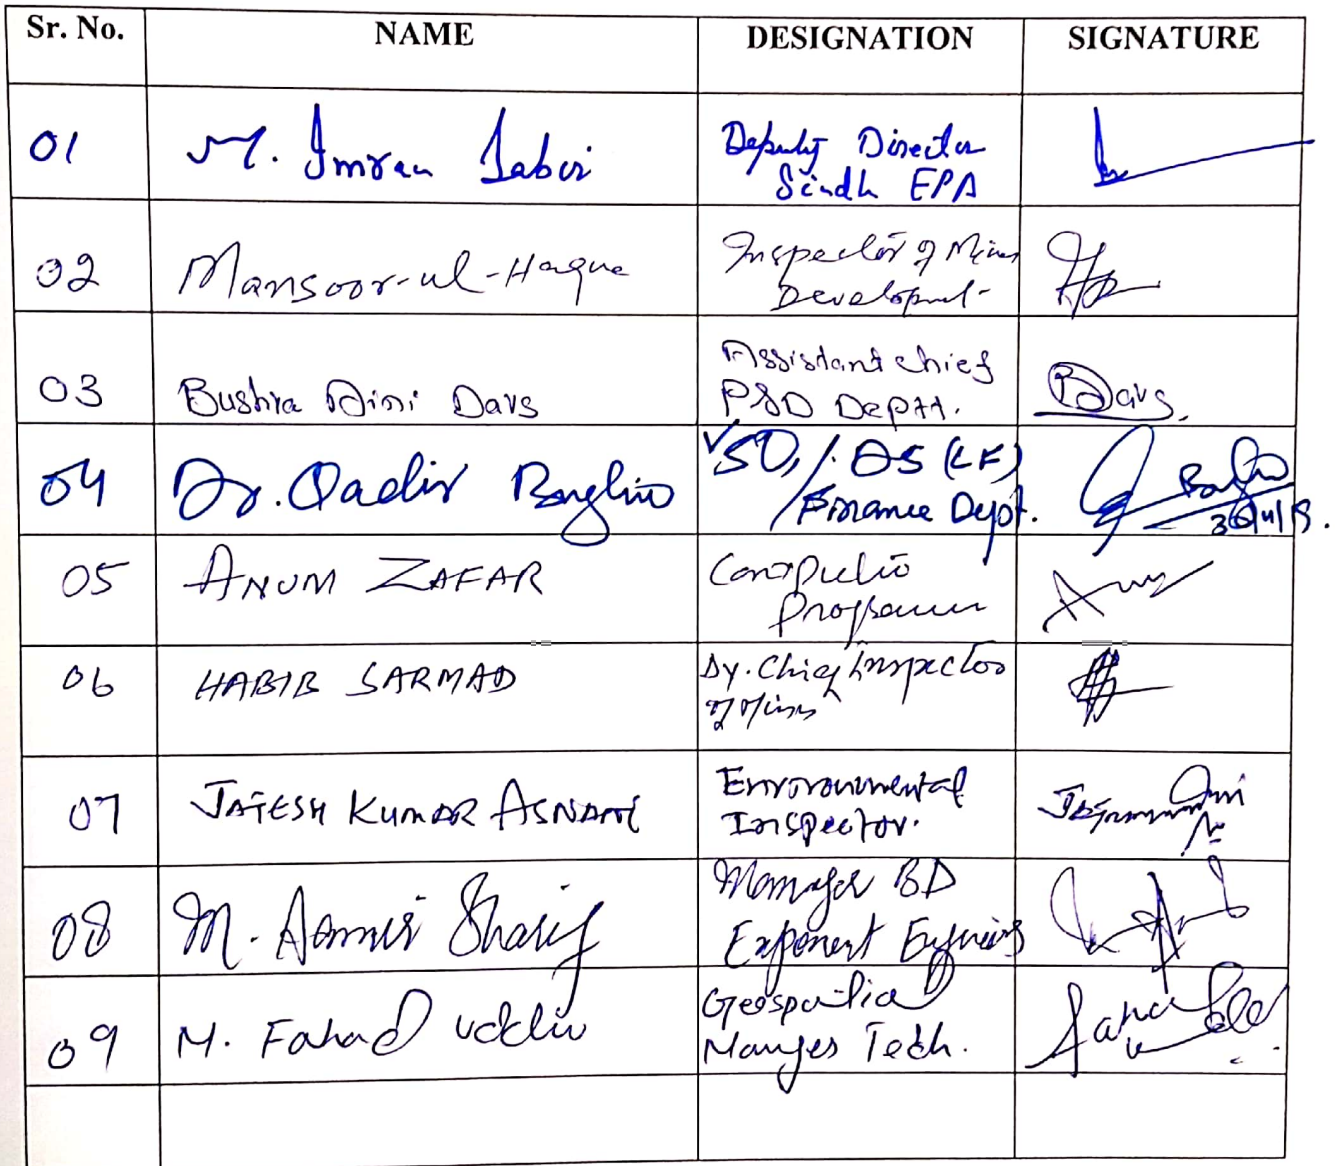 Sr. No. NAME DESIGNATION SIGNATURE
01 M. Imran Sabir Deputy Director
Sindh EPA
02 Mansoor-ul-Haque Inspector of Mines
Development
03 Bushra Dars Assistant Chief
P&D Deptt. Dars
04 Dr. Qadir Bughio SO, / DS (LF)
/ Finance Dept.
05 ANUM ZAFAR Computer
Programmer
06 HABIB SARMAD Dy. Chief Inspector
of Mines
07 JATESH KUMAR ASNANI Environmental
Inspector.
08 M. Aamir Sharif Manager BD
Exponent Engineers
09 M. Fahad uddin Geospatial
Manger Tech.